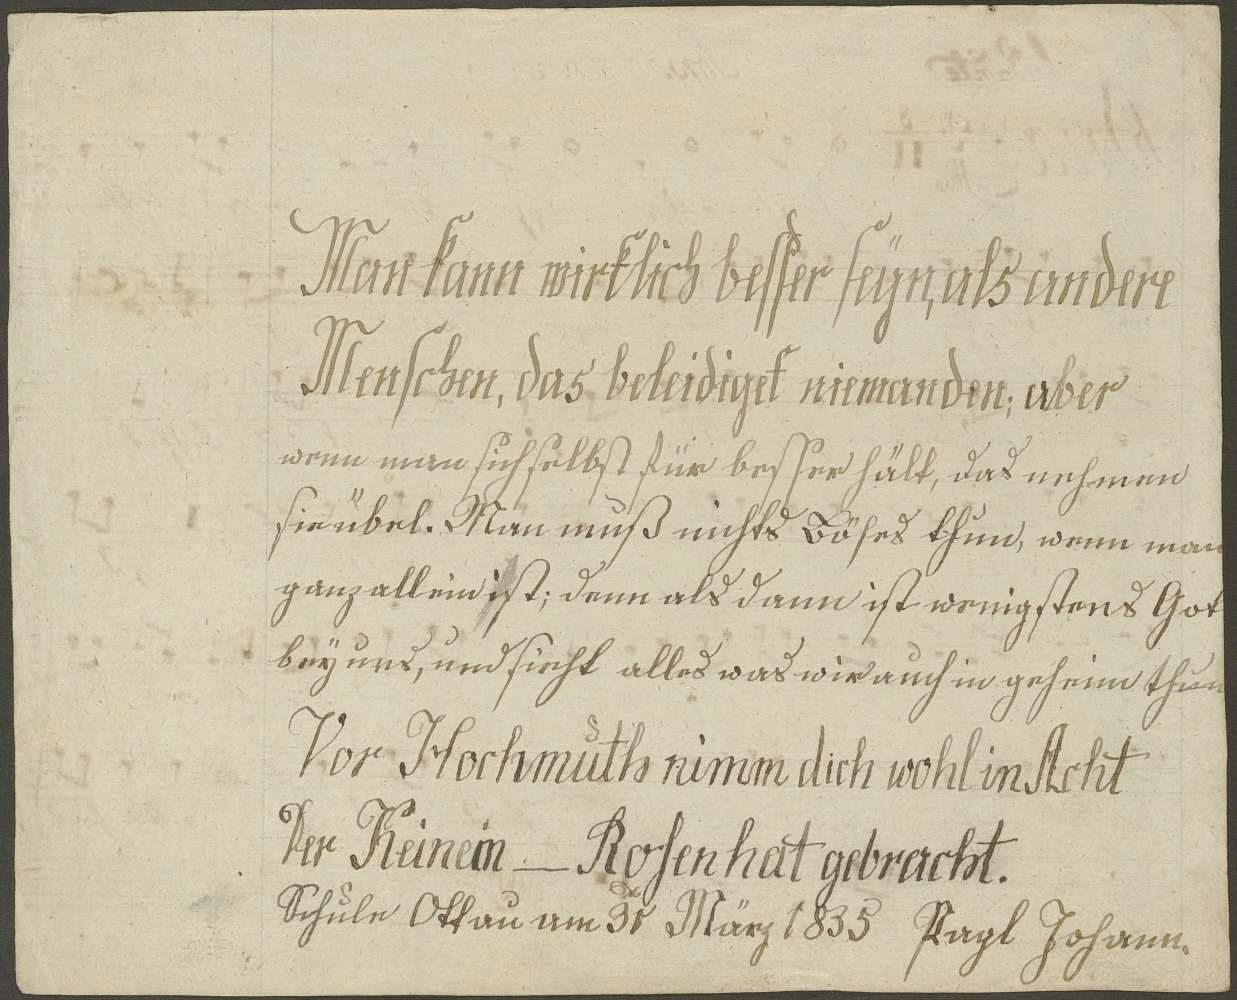 Man kann wirklich besser seÿn, als andere
Menschen, das beleidiget niemanden; aber
wenn man sich selbst für besser hält, das nehmen
sie übel. Man muß nichts Böses thun, wenn man
ganz allein ist; denn als dann ist wenigstens Got
beÿ uns, und sieht alles was wir auch in geheim thun
Vor Hochmuth nimm dich wohl in Acht
Der Keinem — Rosen hat gebracht.
Schule Ottau am 31 März 1835 Pagl Johann.